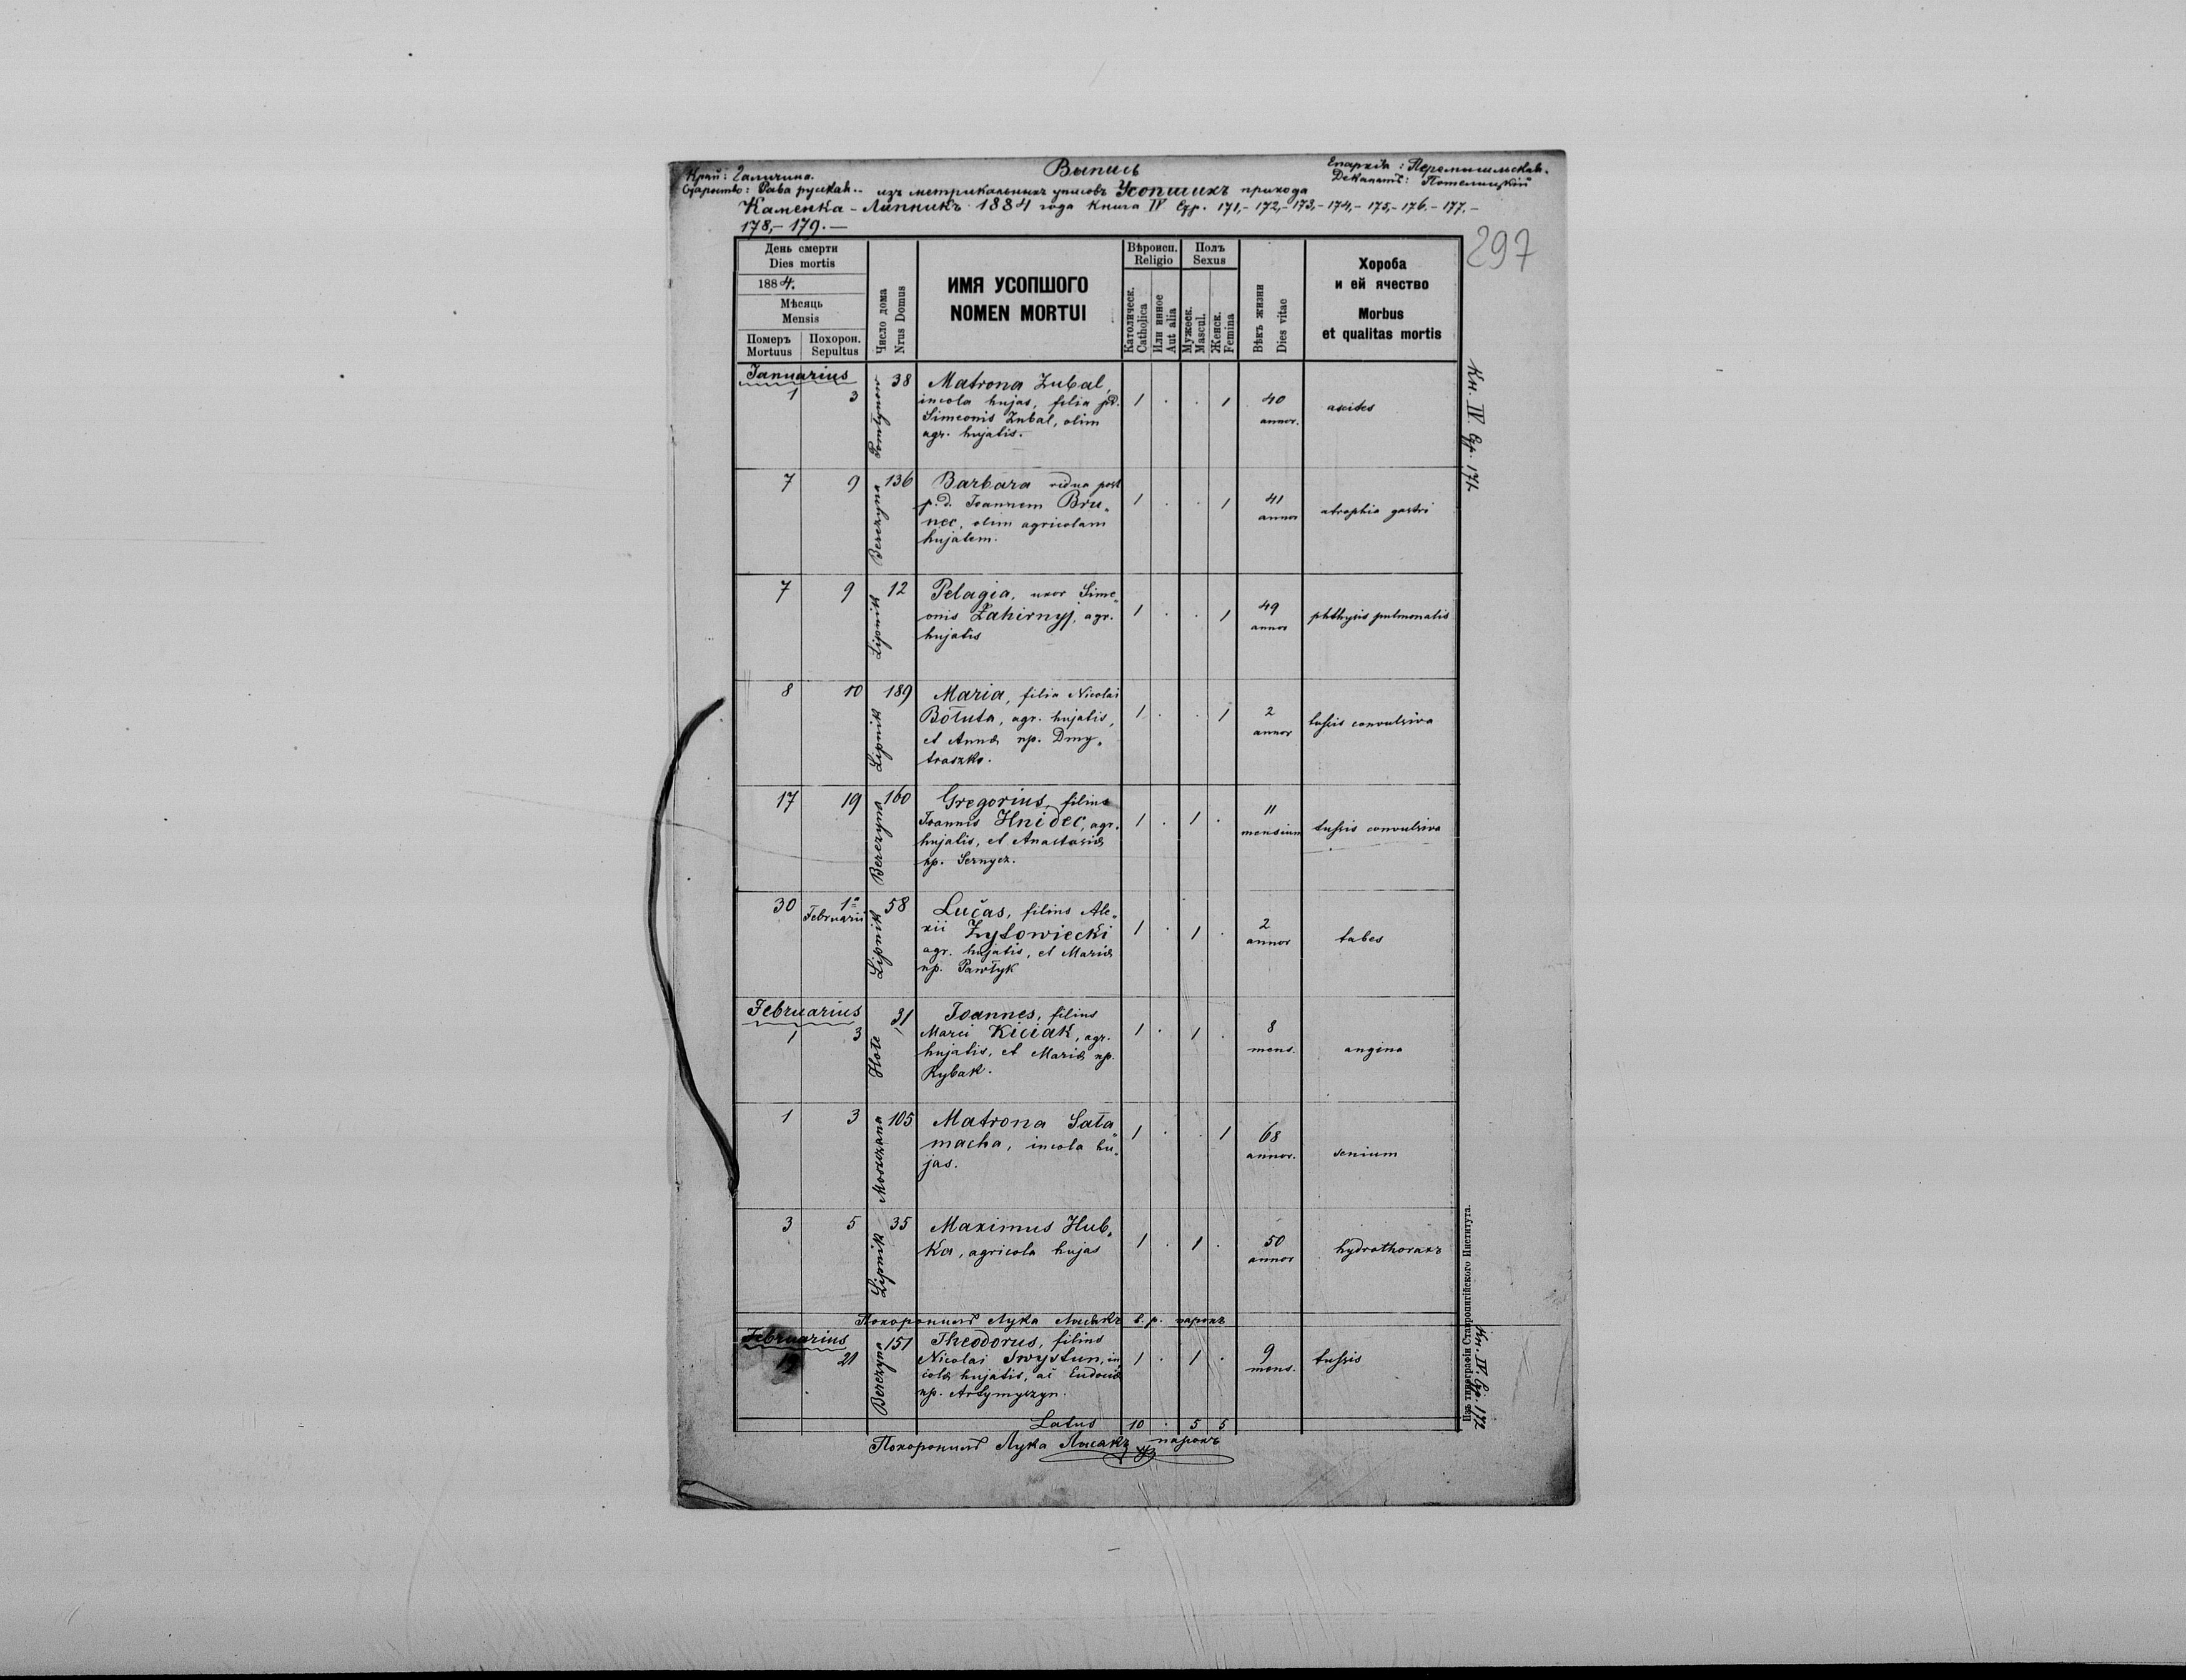 Край: Галичина.
Выпись
Епархія: Перемышльская.
Староство: Рава русская..
изъ метрикальныхъ уписовъ Усопшихъ прихода
Деканатъ: Потелицкій
Каменка - Липникъ 1884 года Книга IV Стр. 171,- 172,- 173,- 174,- 175,- 176.- 177.-
178,- 179.-
297
День смерти
Dies mortis
1884.
Мѣсяць
Mensis
Померъ
Mortuus
Похорон.
Sepultus
Число дома
Nrus Domus
ИМЯ УСОПШОГО
NOMEN MORTUI
Вѣроисп.
Religio
Католическ.
Catholica
Или инное
Aut alia
Полъ
Sexus
Мужеск.
Mascul.
Женск.
Femina
Вѣкъ жизни
Dies vitae
Хороба
и ей ячество
Morbus
et qualitas mortis
Januarius
1 3 38 Matrona Zubal,
incola hujas, filia pd.
Simeonis Zubal, olim
agr. hujatis.
1 . . 1 40 annor. ascites
Кн. IV. Стр. 171.
7 9 Berezyna 136 Barbara vidua post
p.d. Joannem Bru„
nec, olim agricolam
hujatem.
1 . . 1 41 annor atrophia gastri
7 9 Lipnik 12 Pelagia, uxor Sime„
onis Zahirnyj, agr.
hujatis
1 . . 1 49 annor phthysis pulmonalis
8 10 Lipnik 189 Maria, filia Nicolai
Bołuta, agr. hujatis,
et Annæ np. Dmy„
traszko.
1 . . 1 2 annor tussis convulsiva
17 19 Berezyna 160 Gregorius, filius
Joannis Hnidec, agr.
hujatis, et Anastasiæ
np. Sernycz.
1 . 1 . 11 mensium tussis convulsiva
30 1a Februarii Lipnik 58 Lucas, filius Ale„
xii Zytowiecki
agr. hujatis, et Mariæ
np. Pawłyk
1 . 1 . 2 annor tabes
Februarius
1 3 Hołe 31 Joannes, filius
Marci Kiciak, agr.
hujatis, et Mariæ np.
Rybak.
1 . 1 . 8 mens. angina
1 3 Moszczana 105 Matrona Sała„
macha, incola hu„
jas.
1 . . 1 68 annor. senium
3 5 Lipnik 35 Maximus Hub„
ka, agricola hujas
1 . 1 . 50 annor hydrothorax
Похоронилъ Лука Лысакъ в. р. парохъ
Februarius
21 Berezyna 151 Theodorus, filius
Nicolai Swystun, in
colæ hujatis, ac Eudociæ
np. Artymyszyn.
1 . 1 . 9 mens. tussis
Кн. IV. Стр. 172
Latus 10 . 5 5
Похоронилъ Лука Лысакъ парохъ
Изъ типографіи Ставропигійского Института.